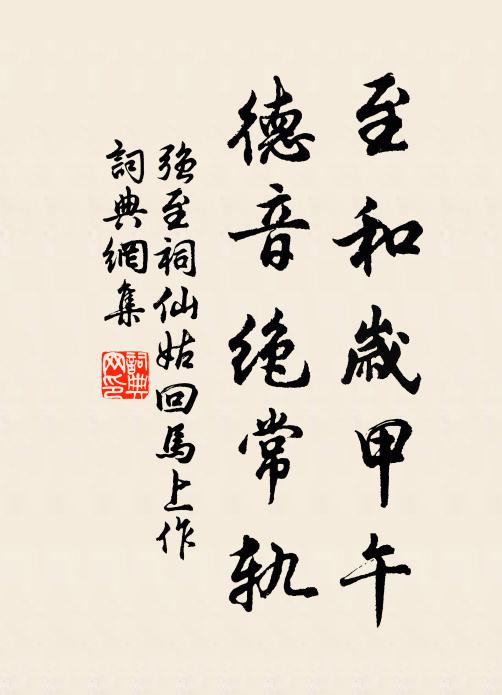 至和歲甲午
德音絕常軌
強至祠仙姑回馬上作
詞典網集
詞典
网印